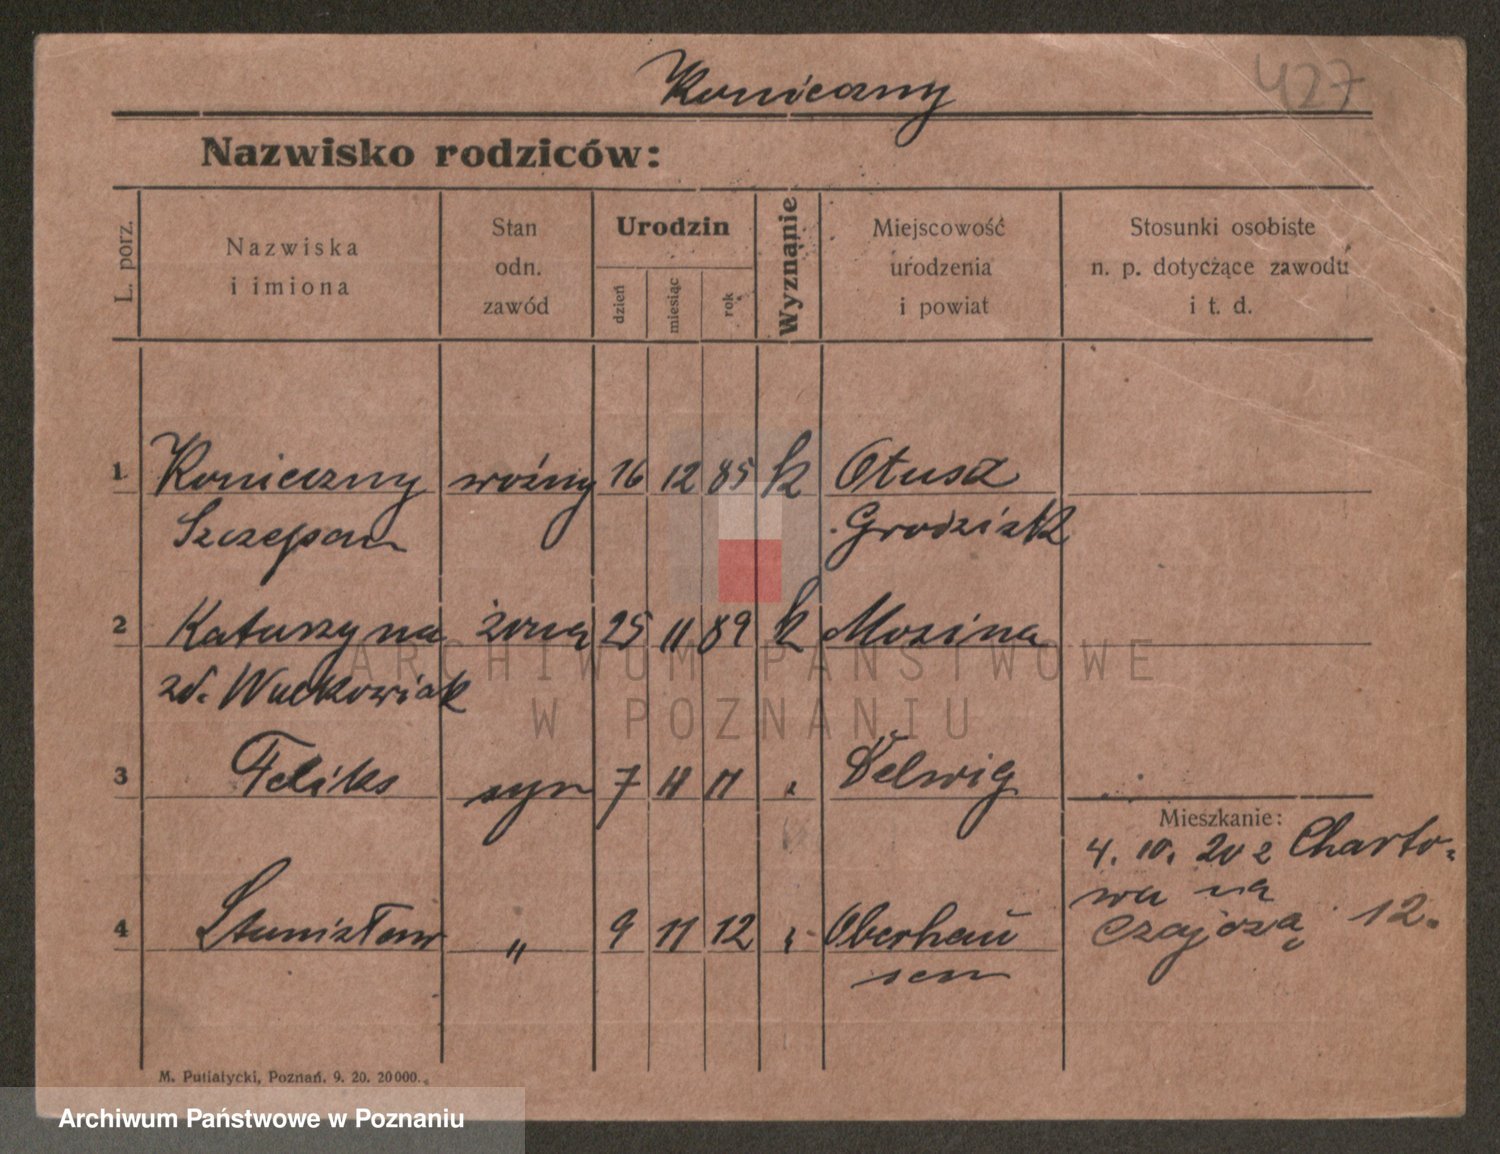 Konieczny
427
Nazwisko rodziców:
L. porz.
Nazwiska
i imiona
Stan
odn.
zawód
Urodzin
dzień
miesiąc
rok
Wyznanie
Miejscowość
urodzenia
i powiat
Stosunki osobiste
n. p. dotyczące zawodu
i t. d.
1 Konieczny woźny 16 12 85 k Otusz
Szczepan Grodzisk
2 Katarzyna żona 25 11 89 k Mosina
zd. Waćkowiak
3 Feliks syn 7 11 11 " Delwig
Mieszkanie:
4. 10. 20 z Charto-
wa na
Czajczą 12.
4 Stanisław " 9 11 12 " Oberhau
sen
ARCHIWUM PAŃSTWOWE
W POZNANIU
M. Putiatycki, Poznań. 9. 20. 20000.
Archiwum Państwowe w Poznaniu